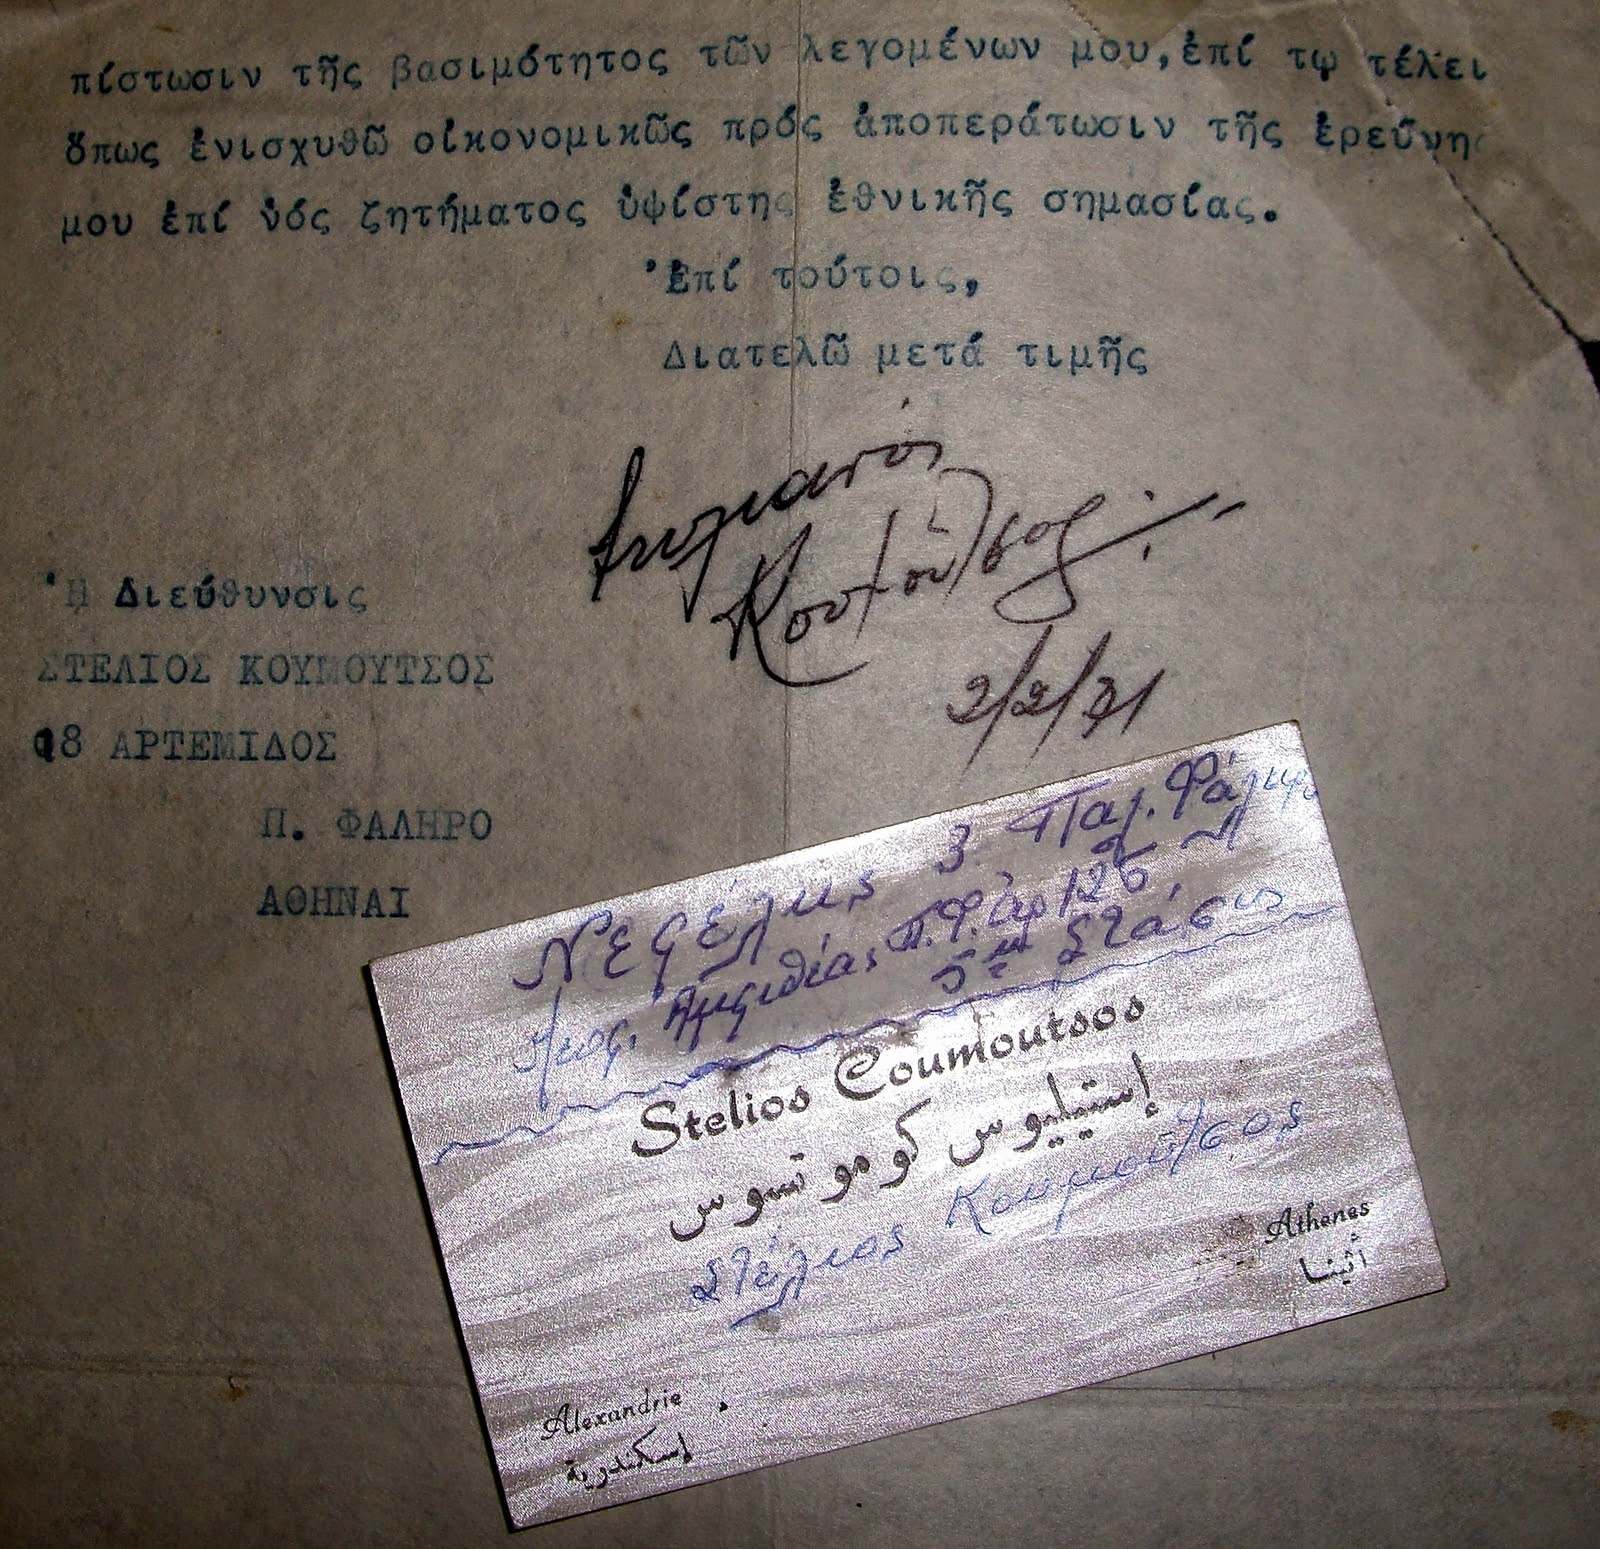 πίστωσιν τῆς βασιμότητος τῶν λεγομένων μου, ἐπί τῳ τέλει
ὅπως ἐνισχυθῶ οἰκονομικῶς πρός ἀποπεράτωσιν τῆς ἐρεύνης
μου ἐπί νός ζητήματος ὑψίστης ἐθνικῆς σημασίας.
'Επί τούτοις,
Διατελῶ μετά τιμῆς
Στυλιανός
Κουμούτσος
2/2/71
'Η Διεύθυνσις
ΣΤΕΛΙΟΣ ΚΟΥΜΟΥΤΣΟΣ
18 ΑΡΤΕΜΙΔΟΣ
Π. ΦΑΛΗΡΟ
ΑΘΗΝΑΙ
Νεφέλης 3 Παλ. Φάληρο
Λεωφ. Αμφιθέας Π. Φαλ 126
5η Στάσις
Stelios Coumoutsos
إستيليوس كوموتسوس
Στέλιος Κουμούτσος
Athenes
أثينا
Alexandrie
إسكندرية